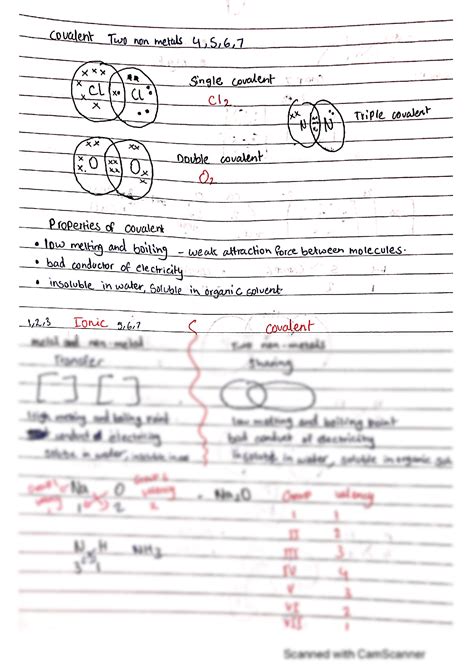 Covalent Two non metals 4,5,6,7
Cl Cl
Single covalent
Cl2
N N
Triple covalent
O O
Double covalent
O2
Properties of covalent
• low melting and boiling - weak attraction force between molecules.
• bad conductor of electricity
• insoluble in water, soluble in organic solvent.
1,2,3 Ionic 5,6,7
covalent
metal and non-metal
Two non-metals
Transfer
Sharing
[ ] [ ]
High melting and boiling point
low melting and boiling point
conduct electricity
bad conduct of electricity
insoluble in water, soluble in organic sol
Na O
Na2O
1 2
Group valency
I 1
II 2
N H
NH3
III 3
3 1
IV 4
V 3
VI 2
VII 1
Scanned with CamScanner